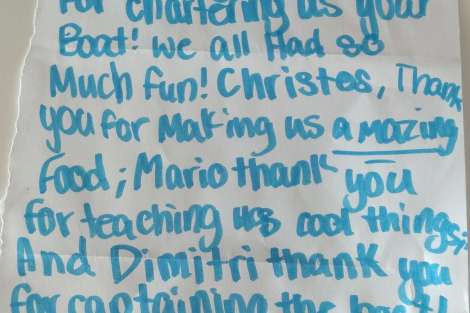 For chartering us your
Boat! We all Had so
Much fun! Christos, Thank
you for Making us amazing
Food; Mario thank you
for teaching us cool things;
And Dimitri thank you
for captaining the boat!